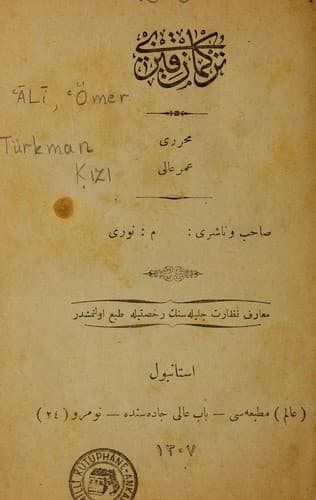 تركمان قيزى
ʿĀLĪ, ʿÖmer
Türkman
Kızı
محررى
عمر عالى
صاحب و ناشرى : م : نورى
معارف نظارت جليله سنك رخصتيله طبع اولنمشدر
استانبول
( عالم ) مطبعه سى — باب عالى جاده سنده — نومرو ( ٢٤ )
١٣٠٧
MİLLİ KÜTÜPHANE - ANKARA